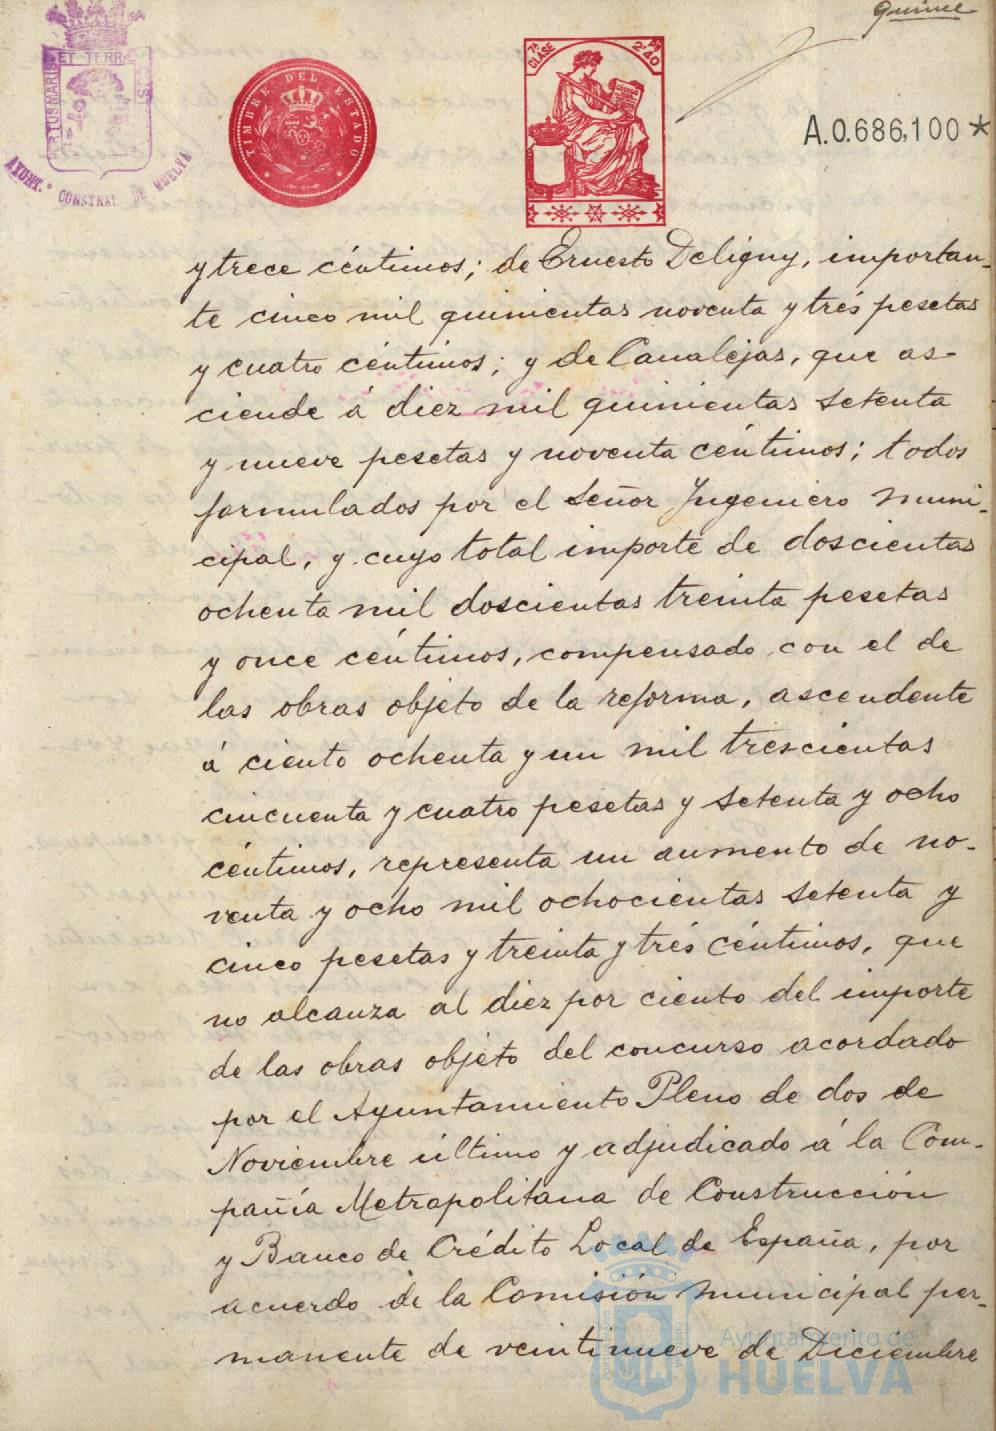 Quince
PORTUS MARIS ET TERRÆ CUSTOS
AYUNT.º CONSTNAL DE HUELVA
TIMBRE DEL ESTADO
7ª CLASE
Pts 2'40
A.0.686,100*
y trece céntimos; de Ernesto Deligny, importan-
te cinco mil quinientas noventa y trés pesetas
y cuatro céntimos; y de Canalejas, que as-
ciende á diez mil quinientas setenta
y nueve pesetas y noventa céntimos; todos
formulados por el Señor Ingeniero muni-
cipal, y cuyo total importe de doscientas
ochenta mil doscientas treinta pesetas
y once céntimos, compensado con el de
las obras objeto de la reforma, ascendente
á ciento ochenta y un mil trescientas
cincuenta y cuatro pesetas y setenta y ocho
céntimos, representa un aumento de no-
venta y ocho mil ochocientas setenta y
cinco pesetas y treinta y trés céntimos, que
no alcanza al diez por ciento del importe
de las obras objeto del concurso acordado
por el Ayuntamiento Pleno de dos de
Noviembre último y adjudicado á la Com-
pañía Metropolitana de Construcción
y Banco de Crédito Local de España, por
acuerdo de la Comisión municipal per-
manente de veintinueve de Diciembre
Ayuntamiento de
HUELVA